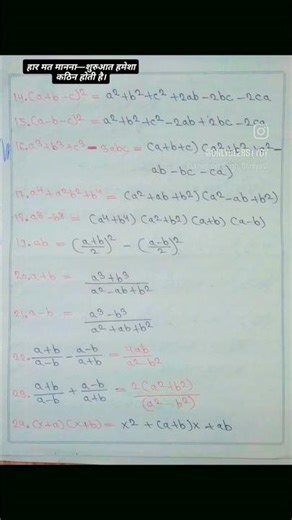 हार मत मानना—शुरुआत हमेशा
कठिन होती है।
14. (a+b-c)² = a²+b²+c²+2ab-2bc-2ca
15. (a-b-c)² = a²+b²+c²-2ab+2bc-2ca
16. a³+b³+c³-3abc = (a+b+c) (a²+b²+c²-
ab-bc-ca)
17. a⁴+a²b²+b⁴ = (a²+ab+b²) (a²-ab+b²)
18. a⁸-b⁸ = (a⁴+b⁴) (a²+b²) (a+b) (a-b)
19. ab = (a+b/2)² - (a-b/2)²
20. a+b = a³+b³/a²-ab+b²
21. a-b = a³-b³/a²+ab+b²
22. a+b/a-b - a-b/a+b = 4ab/a²-b²
23. a+b/a-b + a-b/a+b = 2(a²+b²)/(a²-b²)
24. (x+a) (x+b) = x² + (a+b)x + ab